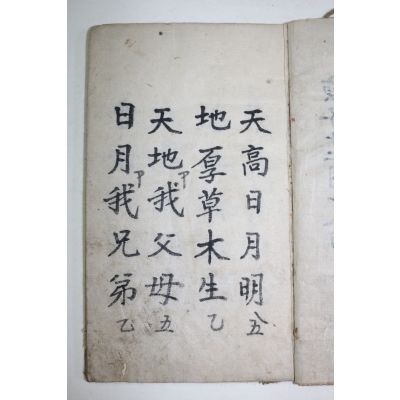 天高日月明五
地厚草木生乙
天地我父母五
日月我兄弟乙